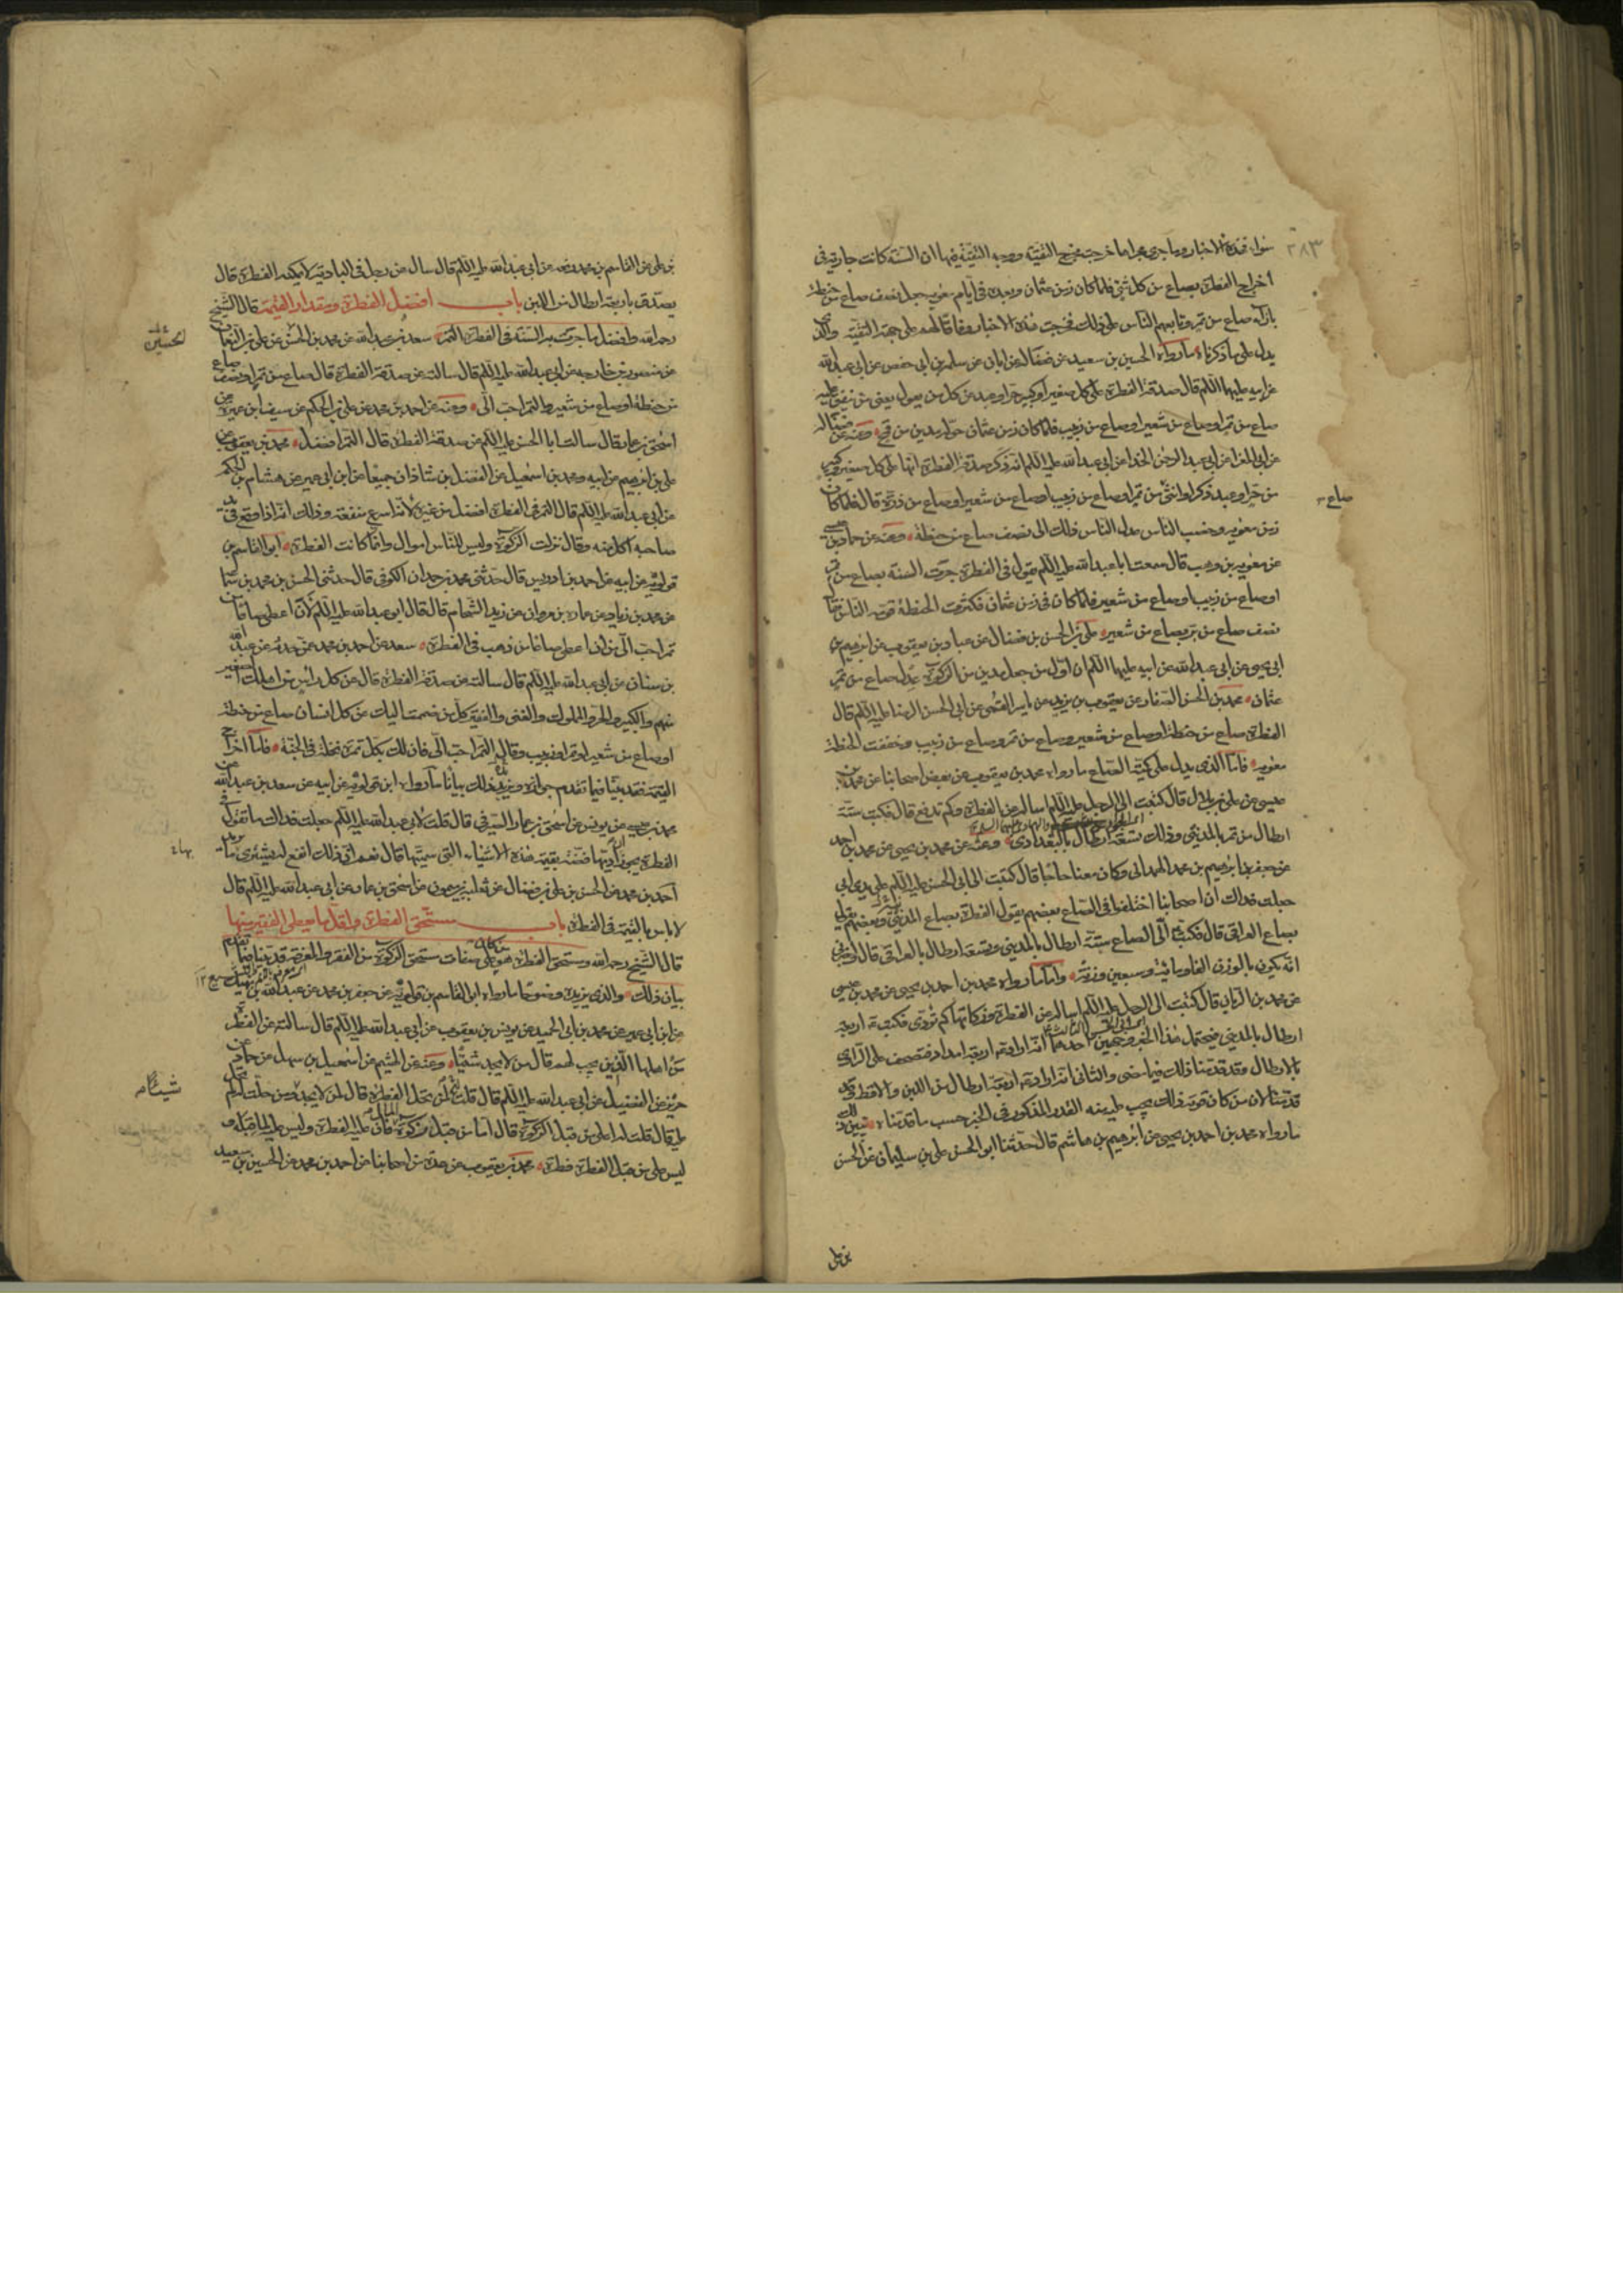 ٢٨٣
سواء فهذه الاخبار وما جرى مجراها خرجت مخرج التقية ووجه التقية فيها ان السنة كانت جارية في
اخراج الفطرة بصاع من كل شئ فلما كان زمن عثمان وبعده في ايام معوية جعل نصف صاع من حنطة
بازاء صاع من تمر وتابعهم الناس على ذلك فخرجت هذه الاخبار وفاقا لهم على جهة التقية والذي
يدل على ما ذكرناه ما رواه الحسين بن سعيد عن فضالة عن ابان عن سلمة بن ابي حفص عن ابي عبد الله
عن ابيه عليهما السلام قال صدقة الفطرة على كل صغير او كبير حر او عبد عن كل من يعول يعني من ينفق عليه
صاع من تمر او صاع من شعير او صاع من زبيب فلما كان زمن عثمان حوله مدين من قمح وعنه عن فضالة
عن ابي المغرا عن ابي عبد الرحمن الحذا عن ابي عبد الله عليه السلام انه ذكر صدقة الفطرة انها على كل صغير وكبير
من حر او عبد ذكر او انثى من تمر او صاع من زبيب او صاع من شعير او صاع من ذرة قال فلما كان
صاع
زمن معوية وخصب الناس عدل الناس ذلك الى نصف صاع من حنطة وعنه عن حماد بن عيسى
عن معوية بن وهب قال سمعت ابا عبد الله عليه السلام يقول في الفطرة جرت السنة بصاع من تمر
او صاع من زبيب او صاع من شعير فلما كان في زمن عثمان فكثرت الحنطة قومه الناس فقال
نصف صاع من بر بصاع من شعير علي بن الحسن بن فضال عن عباد بن يعقوب عن ابرهيم بن
ابي يحيى عن ابي عبد الله عن ابيه عليهما السلام ان اول من جعل مدين من الزكوة عدل صاع من تمر
عثمان محمد بن الحسن الصفار عن يعقوب بن يزيد عن ياسر القمي عن ابي الحسن الرضا عليه السلام قال
الفطرة صاع من حنطة او صاع من شعير وصاع من تمر وصاع من زبيب وخففت الحنطة
معوية فاما الذي يدل على كمية الصاع ما رواه محمد بن يعقوب عن بعض اصحابنا عن محمد بن
عيسى عن علي بن بلال قال كتبت الى الرجل عليه السلام اساله عن الفطرة وكم تدفع قال فكتب ستة
ارطال من تمر بالمدني وذلك تسعة ارطال بالبغدادي وعنه عن محمد بن يحيى عن محمد بن احمد
عن جعفر بن ابرهيم بن محمد الهمداني وكان معنا حاجا قال كتبت الى ابي الحسن عليه السلام على يدي ابي
جعلت فداك ان اصحابنا اختلفوا في الصاع بعضهم يقول الفطرة بصاع المدني وبعضهم يقول
بصاع العراقي قال فكتب الي الصاع ستة ارطال بالمدني وتسعة ارطال بالعراقي قال واخبرني
انه يكون بالوزن الفا ومائة وسبعين وزنة واما ما رواه محمد بن احمد بن يحيى عن محمد بن عيسى
عن محمد بن الريان قال كتبت الى الرجل عليه السلام اساله عن الفطرة وزكاتها كم تؤدى فكتب اربعة
ارطال بالمدني فيحتمل هذا الخبر وجهين احدهما انه اراد اربعة امداد فتصحف على الراوي
بالارطال وقد قدمنا ذلك فيما مضى والثاني انه اراد اربعة ارطال من اللبن والاقط وقد
قدمنا لان من كان قوته ذلك يجب عليه منه القدر المذكور في الخبر حسب ما قدمناه يبين ذلك
ما رواه محمد بن احمد بن يحيى عن ابرهيم بن هاشم قال حدثنا ابو الحسن علي بن سليمان عن الحسن
بن علي
بن علي عن القاسم بن محمد رفعه عن ابي عبد الله عليه السلام قال سال عن رجل في البادية لا يمكنه الفطرة قال
يصدق باربعة ارطال من اللبن باب افضل الفطرة ومقدار القيمة قال الشيخ
رحمه الله وافضل ما جرت به السنة في الفطرة التمر سعد بن عبد الله عن محمد بن الحسن عن علي بن النعمان
الحسين
عن منصور بن خارجه عن ابي عبد الله عليه السلام قال سالته عن صدقة الفطرة قال صاع من تمر او نصف صاع
من حنطة او صاع من شعير والتمر احب الي وعنه عن احمد بن محمد عن علي بن الحكم عن سيف بن عميرة عن
اسحق بن عمار قال سالت ابا الحسن عليه السلام عن صدقة الفطرة قال التمر افضل محمد بن يعقوب عن
علي بن ابرهيم عن ابيه ومحمد بن اسمعيل عن الفضل بن شاذان جميعا عن ابن ابي عمير عن هشام بن الحكم
عن ابي عبد الله عليه السلام قال التمر في الفطرة افضل من غيره لانه اسرع منفعة وذلك انه اذا وقع في يد
صاحبه اكل منه وقال نزلت الزكوة وليس للناس اموال وانما كانت الفطرة ابو القاسم بن
قولويه عن ابيه عن احمد بن ادريس قال حدثني محمد بن حمدان الكوفي قال حدثني الحسن بن محمد بن سماعة
عن محمد بن زياد عن عمارة بن مروان عن زيد الشحام قال قال ابو عبد الله عليه السلام لان اعطي صاعا من
تمر احب الي من ان اعطي صاعا من ذهب في الفطرة سعد عن احمد بن محمد عمن حدثه عن عبد الله
بن سنان عن ابي عبد الله عليه السلام قال سالته عن صدقة الفطرة قال عن كل راس من اهلك الصغير
منهم والكبير والحر والمملوك والغني والفقير كل من ضممت اليك عن كل انسان صاع من حنطة
او صاع من شعير او تمر او زبيب وقال التمر احب الي فان لك بكل تمرة نخلة في الجنة فاما اخراج
القيمة فقد بينا فيما تقدم جوازه ويزيد ذلك بيانا ما رواه ابن قولويه عن ابيه عن سعد بن عبد الله عن
محمد بن عيسى عن يونس عن اسحق بن عمار الصيرفي قال قلت لابي عبد الله عليه السلام جعلت فداك ما تقول في
الفطرة يجوز ان اؤديها فضة بقيمة هذه الاشياء التي سميتها قال نعم ان ذلك انفع له يشتري ما يريد
احمد بن محمد عن الحسن بن علي بن فضال عن ثعلبة بن ميمون عن اسحق بن عمار عن ابي عبد الله عليه السلام قال
لا باس بالقيمة في الفطرة باب مستحق الفطرة واقل ما يعطى الفقير منها
قال الشيخ رحمه الله ومستحق الفطرة هو من كان على صفات مستحق الزكوة من الفقر والمعرفة قد بينا فيما تقدم
بيان ذلك والذي يزيده وضوحا ما رواه ابو القاسم بن قولويه عن جعفر بن محمد عن عبد الله بن نهيك
عن ابن ابي عمير عن محمد بن ابي الحميد عن يونس بن يعقوب عن ابي عبد الله عليه السلام قال سالته عن الفطرة
من اهلها الذين يجب لهم قال من لا يجد شيئا وعنه عن الهيثم عن اسمعيل بن سهل عن حماد عن
حريز عن الفضيل عن ابي عبد الله عليه السلام قال قلت له لمن تحل الفطرة قال لمن لا يجد ومن حلت له لم تحل
عليه قال قلت له اعلى من قبل الزكوة زكوة قال اما من قبل زكوة المال فان عليه الفطرة وليس عليه لما قبله و
ليس على من قبل الفطرة فطرة محمد بن يعقوب عن عدة من اصحابنا عن احمد بن محمد عن الحسين بن سعيد